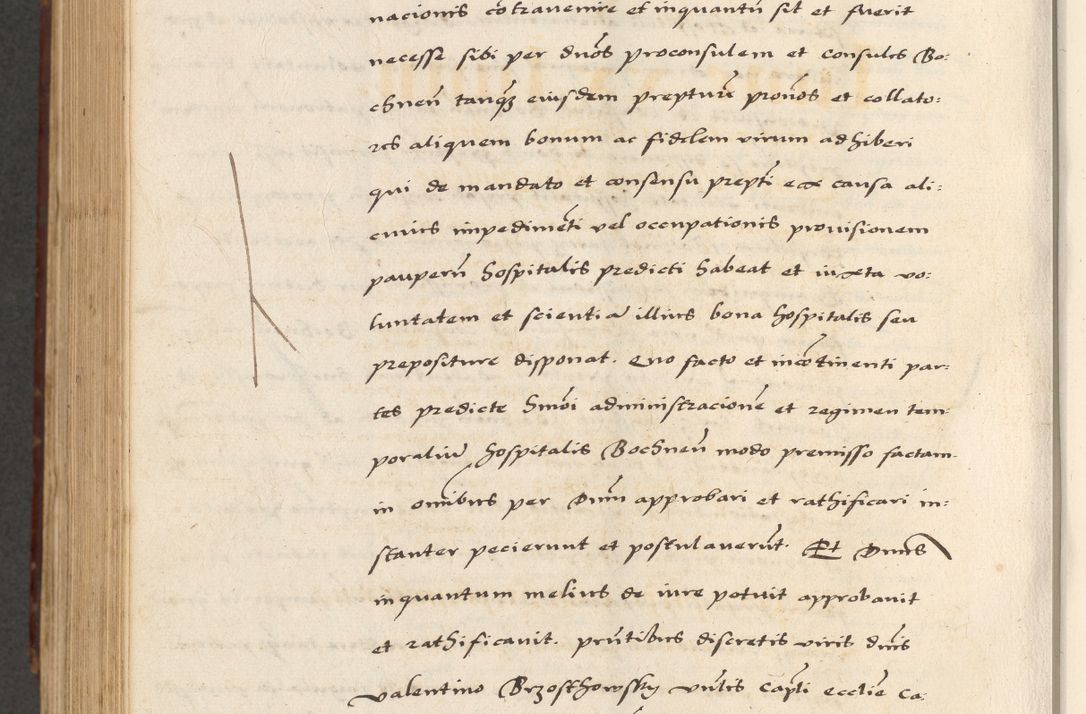 nacionis cõtravenire et inquantũ sit et fuerit
necesse sibi per dnõs proconsulem et consules Bo:
chneñ tanq̃ʒ eiusdem preptur̃e provõs et collato:
res aliquem bonum ac fidelem virum adhiberi
qui de mandato et consensu prepti̋ ex causa ali:
cuius impedimẽti vel occupationis provisionem
pauperũ hospitalis predicti habeat et iuxta vo:
luntatem et scientiã illius bona hospitalis seu
prepositure disponat. Quo facto et incõtinenti par:
tes predicte hmõi administracionẽ et regimen tem:
poraliũ hospitalis Bochneñ modo premisso factam
in omĩbus per Dnm̃ approbari et rathificari in:
stanter pecierunt et postulaverũt. Et Dnus̃
inquantum melius de iure potuit approbavit
et rathificavit. prñtibus discretis viris dnĩs
Valentino Brzosthowsky vnlis̃ Capli̋ ecclie̋ Ca: